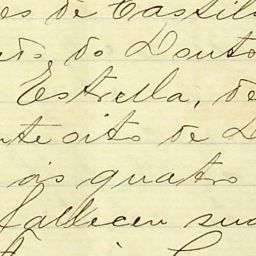 es de Castil
do Douto
Estrella, de
nte oito de
ás quatro
falleceu sua